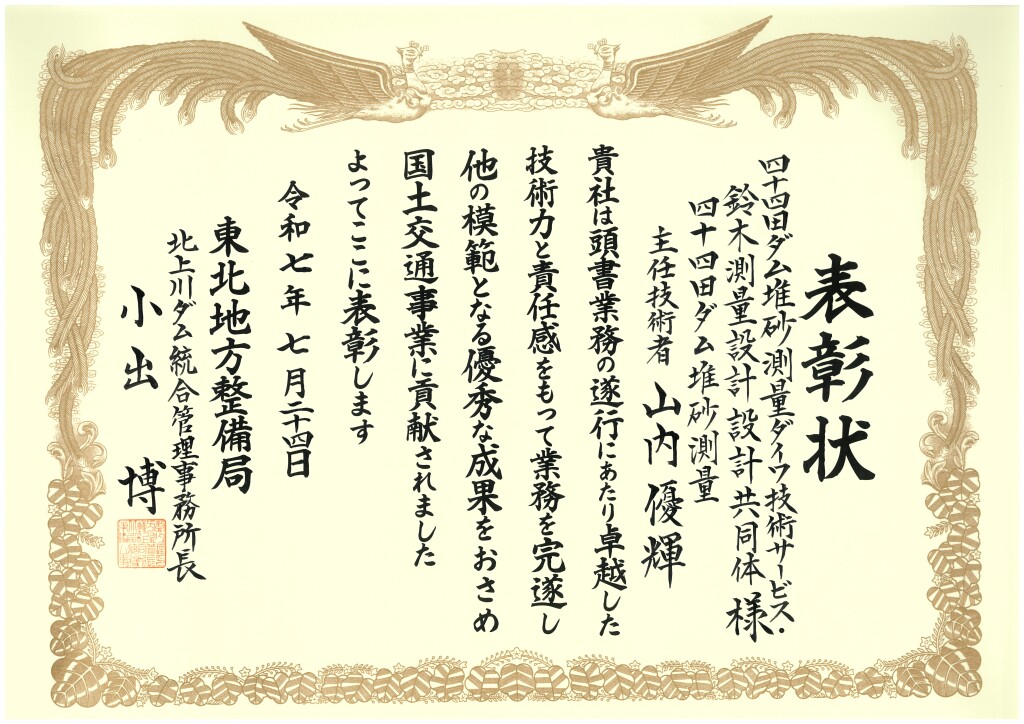 表彰状
四十四田ダム堆砂測量ダイワ技術サービス・
鈴木測量設計設計共同体 様
四十四田ダム堆砂測量
主任技術者 山内優輝
貴社は頭書業務の遂行にあたり卓越した
技術力と責任感をもって業務を完遂し
他の模範となる優秀な成果をおさめ
国土交通事業に貢献されました
よってここに表彰します
令和七年七月二十四日
東北地方整備局
北上川ダム統合管理事務所長
小出 博